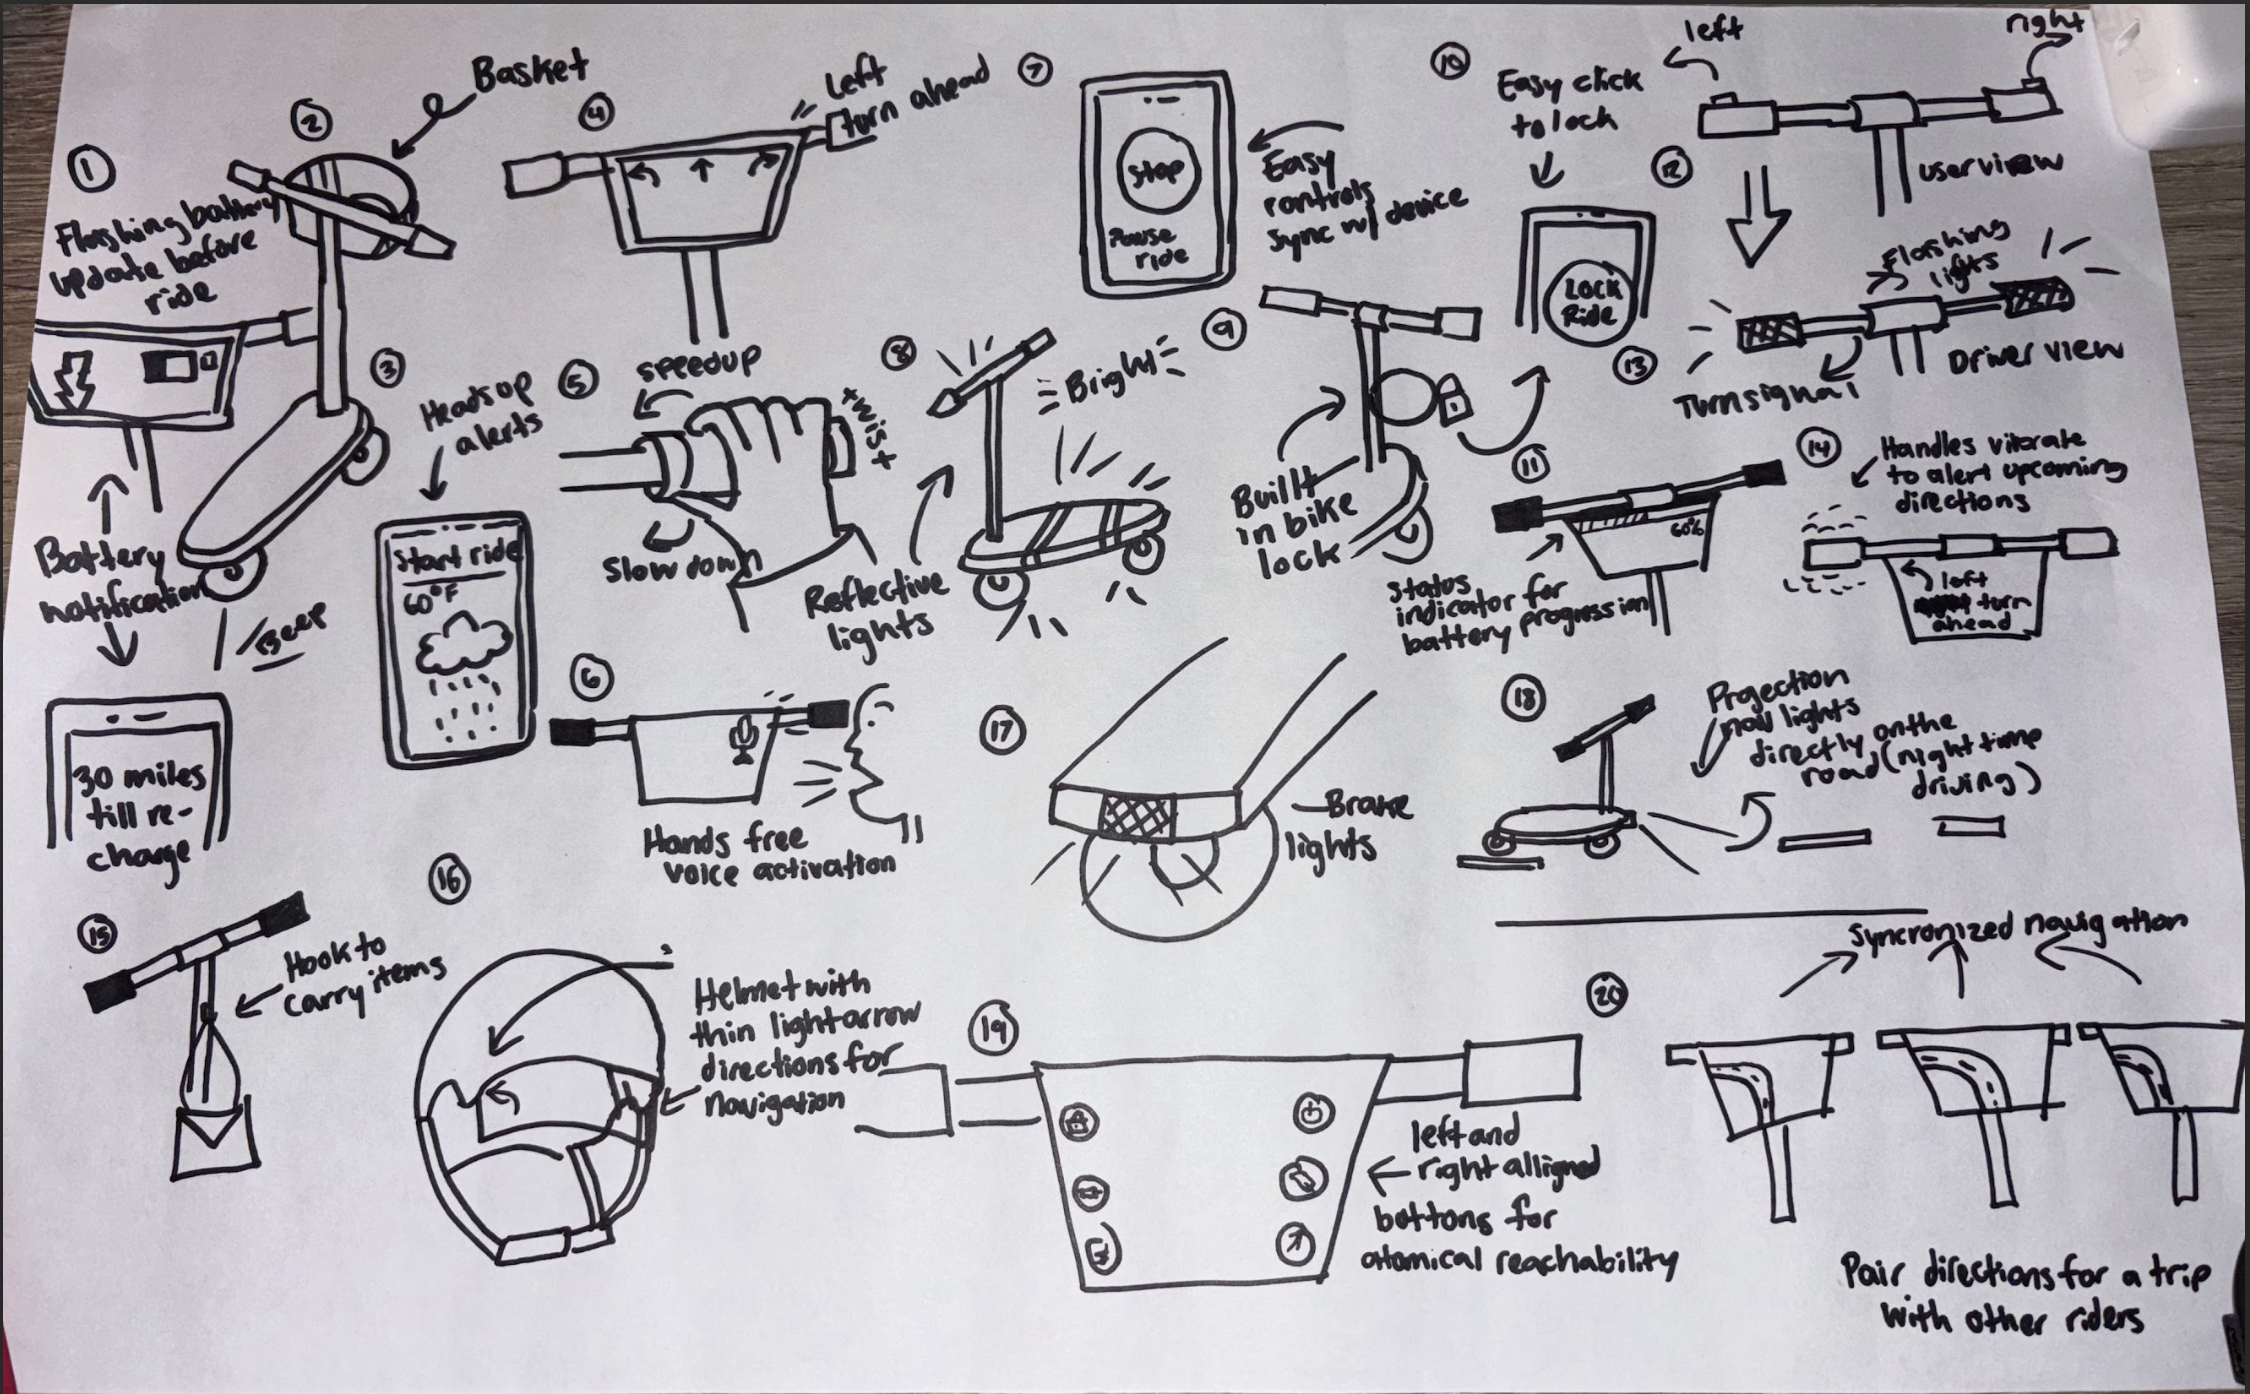 1
Flashing battery
update before
ride
Battery
notification
30 miles
till re-
charge
2
Basket
Beep
3
Heads up
alerts
Start ride
60°F
4
Left
turn ahead
5
speedup
twist
Slow down
6
Hands free
voice activation
7
Stop
Pause
ride
Easy
controls
sync w/ device
8
Bright
Reflective
lights
9
Built
in bike
lock
10
Easy click
to lock
Lock
Ride
11
60%
status
indicator for
battery progression
12
left
right
user view
13
Flashing
lights
Turn signal
Driver view
14
Handles vibrate
to alert upcoming
directions
left
turn
ahead
15
Hook to
carry items
16
Helmet with
thin light arrow
directions for
navigation
17
Brake
lights
18
Projection
lights
directly on the
road (night time
driving)
19
left and
right alligned
buttons for
atomical reachability
20
Syncronized navigation
Pair directions for a trip
with other riders